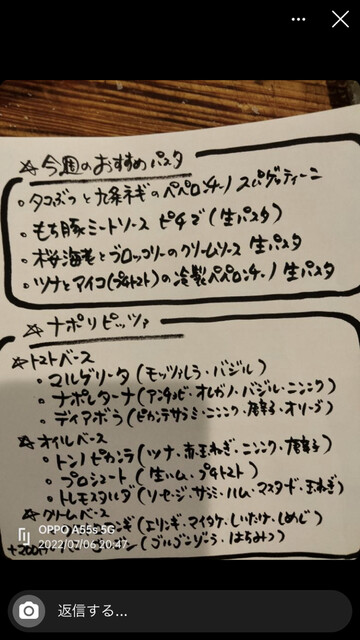 ☆今週のおすすめパスタ
。タコぶつと九条ネギのペペロンチーノ スパゲッティーニ
。もち豚ミートソース ピチで(生パスタ)
。桜海老とブロッコリーのクリームソース 生パスタ
。ツナとアイコ(プチトマト)の冷製ペペロンチーノ 生パスタ
☆ナポリピッツァ
☆トマトベース
。マルゲリータ(モッツァレラ・バジル)
。ナポレターナ(アンチョビ・オレガノ・バジル・ニンニク)
。ディアボラ(ピカンテサラミ・ニンニク・唐辛子・オリーブ)
☆オイルベース
。トンノピカンテ(ツナ・赤玉ねぎ・ニンニク・唐辛子)
。プロシュート(生ハム・プチトマト)
。トレモスタルダ(ソーセージ・サラミ・ハム・マスタード・玉ねぎ)
☆クリームベース
ンギ(エリンギ・マイタケ・しいたけ・しめじ)
+200
ン(ゴルゴンゾーラ・はちみつ)
OPPO A55s 5G
2022/07/06 20:47
返信する...